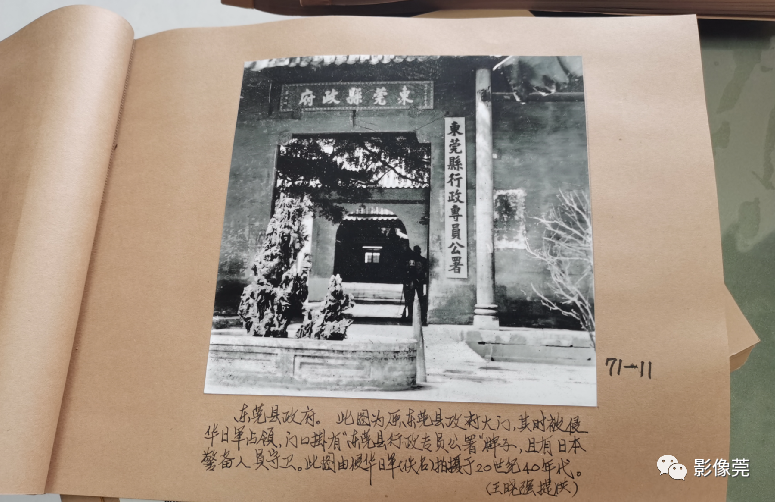 府政縣莞東
東莞縣行政專員公署
71-11
东莞县政府。 此图为原东莞县政府大门,其时被侵
华日军占领,门口挂有“东莞县行政专员公署”牌子,且有日本
警备人员守卫。此图由侵华日军(佚名)拍摄于20世纪40年代。
(王晓强提供)
影像莞